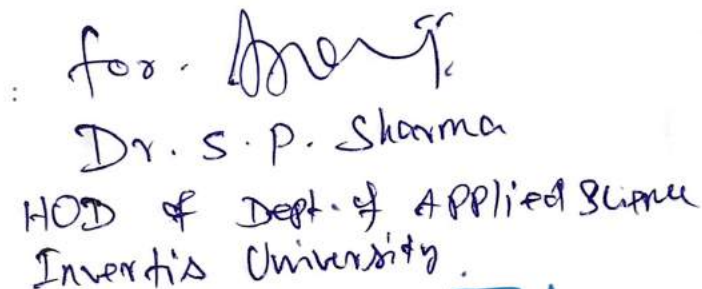 for.
: Dr. S. P. Sharma
HOD of Dept. of Applied Science
Invertis University.